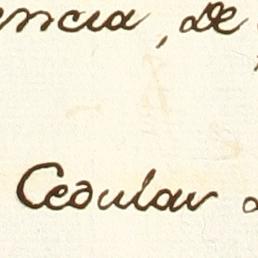 encia, de
Cedular